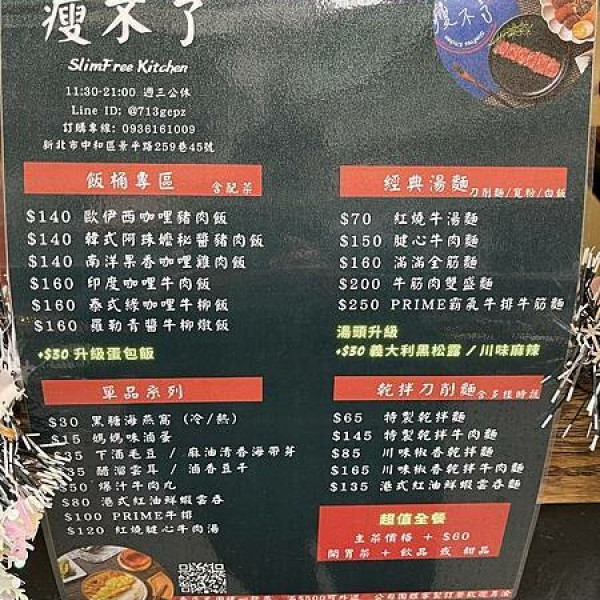 瘦不了
SlimFree Kitchen
11:30-21:00 週三公休
Line ID: @713gepz
訂購專線: 0936161009
新北市中和區景平路259巷45號
飯桶專區 含配菜
$140 歐伊西咖哩豬肉飯
$140 韓式阿珠嬤秘醬豬肉飯
$140 南洋果香咖哩雞肉飯
$160 印度咖哩牛肉飯
$160 泰式綠咖哩牛柳飯
$160 羅勒青醬牛柳燉飯
+$30 升級蛋包飯
單品系列
$30 黑糖海燕窩 (冷/熱)
$15 媽媽味滷蛋
$35 下酒毛豆 / 麻油清香海帶芽
$35 醋溜雲耳 / 滷香豆干
$50 爆汁牛肉丸
$80 港式紅油鮮蝦雲吞
$100 PRIME牛排
$120 紅燒腱心牛肉湯
經典湯麵 刀削麵/寬粉/白飯
$70 紅燒牛湯麵
$150 腱心牛肉麵
$160 滿滿全筋麵
$200 牛筋肉雙盛麵
$250 PRIME霸氣牛排牛筋麵
湯頭升級
+$30 義大利黑松露 / 川味麻辣
乾拌刀削麵 含多樣時蔬
$65 特製乾拌麵
$145 特製乾拌牛肉麵
$85 川味椒香乾拌麵
$165 川味椒香乾拌牛肉麵
$135 港式紅油鮮蝦雲吞麵
超值全餐
主菜價格 + $60
開胃菜 + 飲品 或 甜品